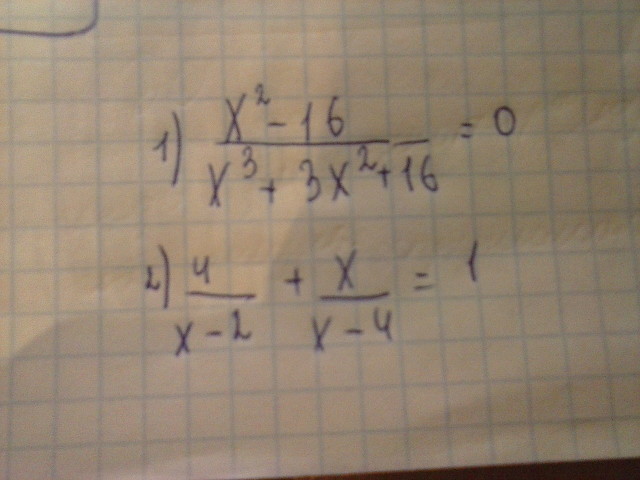 1) (x² - 16) / (x³ + 3x² + 16) = 0
2) 4 / (x - 2) + x / (x - 4) = 1